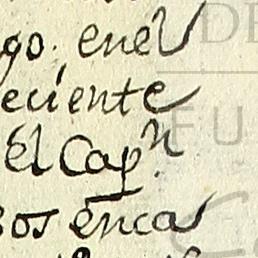 go. enel
eciente
El Capⁿ.
os encas